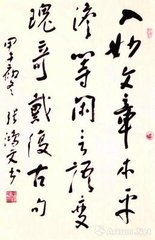 入妙文章本平
淡等闲言语变
瑰奇戴復古句
甲午初冬
张海文书
Artron.Net